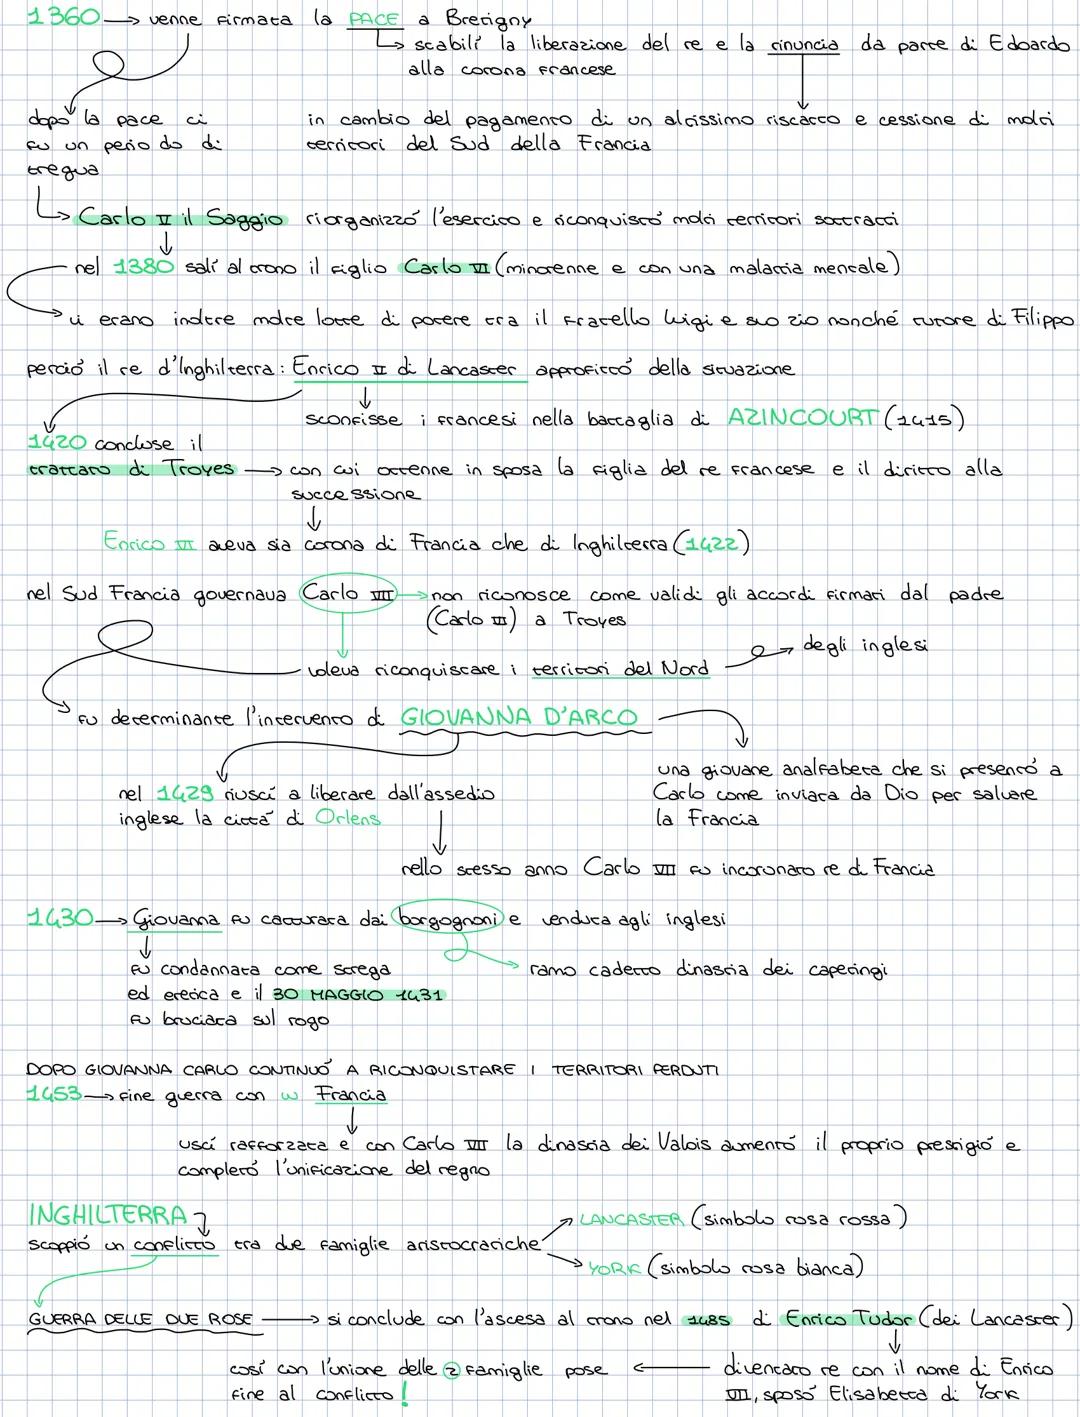 1360 → venne firmata la PACE a Bretigny
↳ stabilí la liberazione del re e la rinuncia da parte di Edoardo
alla corona francese
dopo la pace ci
fu un perio do di
tregua
in cambio del pagamento di un altissimo riscatto e cessione di molti
territori del Sud della Francia
↳ Carlo V il Saggio riorganizzó l'esercito e riconquistó molti territori sottratti
nel 1380 salí al trono il figlio Carlo VI (minorenne e con una malattia mentale)
vi erano inoltre molte lotte di potere tra il fratello Luigi e suo zio nonché tutore di Filippo
perció il re d'Inghilterra: Enrico V di Lancaster approfittó della situazione
sconfisse i francesi nella battaglia di AZINCOURT (1415)
1420 concluse il
trattato di Troyes → con cui ottenne in sposa la figlia del re francese e il diritto alla
successione
Enrico VI aveva sia corona di Francia che di Inghilterra (1422)
nel Sud Francia governava Carlo VII → non riconosce come validi gli accordi firmati dal padre
(Carlo VI) a Troyes
voleva riconquistare i territori del Nord → degli inglesi
fu determinante l'intervento di GIOVANNA D'ARCO
una giovane analfabeta che si presentó a
Carlo come inviata da Dio per salvare
la Francia
nel 1429 riuscí a liberare dall'assedio
inglese la cittá di Orlens
nello stesso anno Carlo VII fu incoronato re di Francia
1430 → Giovanna fu catturata dai borgognoni e venduta agli inglesi
ramo cadetto dinastia dei capetingi
fu condannata come strega
ed eretica e il 30 MAGGIO 1431
fu bruciata sul rogo
DOPO GIOVANNA CARLO CONTINUÓ A RICONQUISTARE I TERRITORI PERDUTI
1453 → fine guerra con w Francia
uscí rafforzata e con Carlo VII la dinastia dei Valois aumentó il proprio prestigio e
completó l'unificazione del regno
INGHILTERRA
scoppió un conflitto tra due famiglie aristocratiche
LANCASTER (simbolo rosa rossa)
YORK (simbolo rosa bianca)
GUERRA DELLE DUE ROSE → si conclude con l'ascesa al trono nel 1485 di Enrico Tudor (dei Lancaster)
diventato re con il nome di Enrico
VII, sposó Elisabetta di York
cosí con l'unione delle 2 famiglie pose
fine al conflitto!